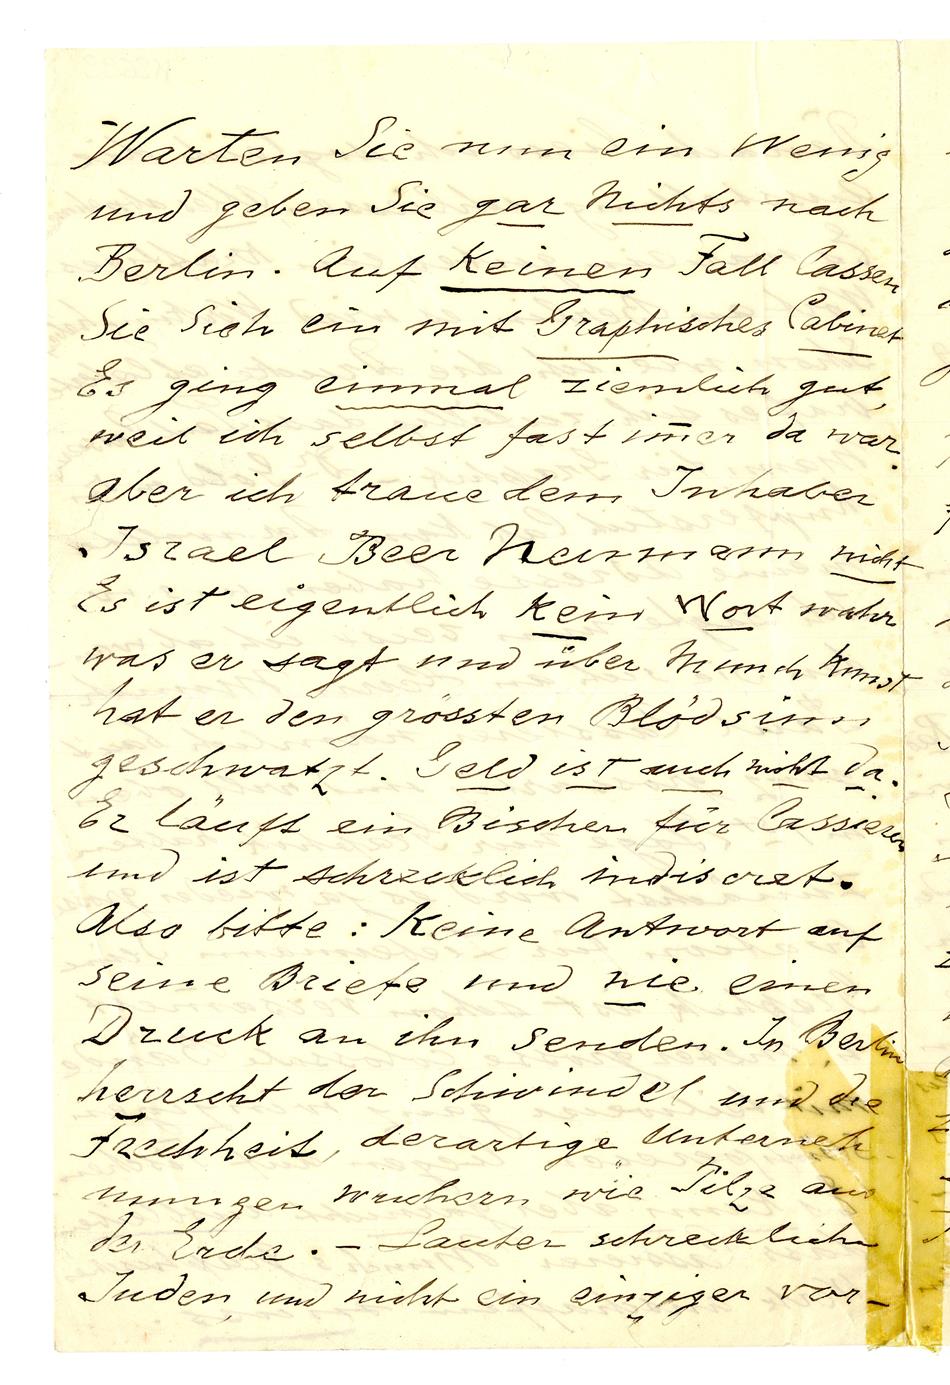 Warten Sie nun ein Wenig
und geben Sie gar Nichts nach
Berlin. Auf Keinen Fall lassen
Sie Sich ein mit Graphisches Cabinet
Es ging einmal ziemlich gut,
weil ich selbst fast im̄er da war.
aber ich traue dem Inhaber
Israel Beer Neumann nicht
Es ist eigentlich kein Wort wahr
was er sagt und über Munch Kunst
hat er den grössten Blödsinn
geschwatzt. Geld ist auch nicht da.
Er läuft ein Bischen für Cassierer
und ist schrecklich indiscret.
Also bitte: Keine Antwort auf
seine Briefe und nie einen
Druck an ihn senden. In Berlin
herrscht der Schwindel und die
Frechheit, derartige Unterneh
mungen wuchern wie Pilze aus
der Erde. – Lauter schreckliche
Juden, und nicht ein einziger vor–